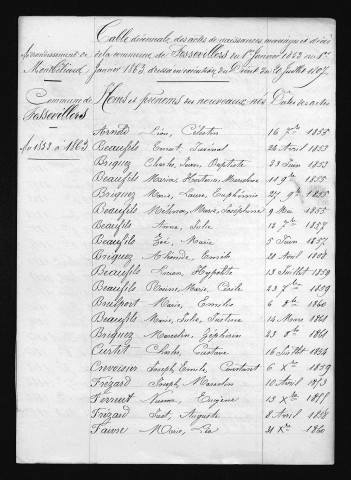 Table décennale des actes de naissances, mariages et décès
Arrondissement de
de la commune de Fessevillers du 1er Janvier 1853 au 1er
Montbéliard
Janvier 1863 dressée en exécution du Décret du 20 Juillet 1807.
Commune de
Fessevillers
Noms et prénoms des nouveaux nés Dates des actes
de 1853 à 1863
Léon, Célestin 16 7bre 1855
Beaufils Ernest, Juvénal 24 Avril 1853
Briquez Charles, Jean, Baptiste 23 Juin 1853
Beaufils Maria, Hortense, Marceline 11 9bre 1855
Briquez Marie, Laure, Euphémie 27 9bre 1855
Beaufils Mélina, Marie, Joséphine 9 Mai 1855
Beaufils Anna, Julie 12 7bre 1857
Beaufils Zoé, Marie 5 Juin 1857
Briquez Emile 20 Avril 1858
Beaufils Lucien, Hypolite 13 Juillet 1859
Beaufils Marie, Cécile 23 7bre 1859
Marie, Emilie 6 8bre 1860
Beaufils Marie, Julie, Justine 14 Mars 1861
Briquez Marcelin, Zéphirin 23 8bre 1861
Charles, Gustave 16 Juillet 1854
Crevoisier Joseph, Emile, Constant 6 Xbre 1859
Frézard Joseph, Marcelin 10 Avril 1853
Numa, Eugène 13 Xbre 1855
Frézard Just, Auguste 8 Avril 1858
Faivre Marie, Léa 31 Xbre 1860